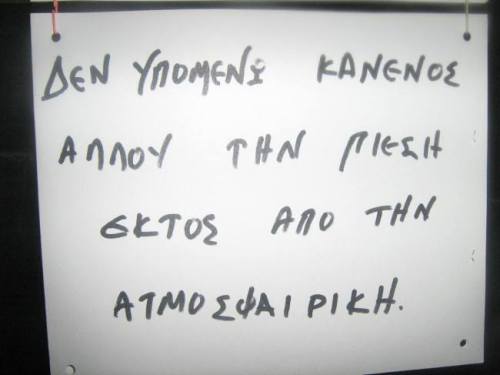 ΔΕΝ ΥΠΟΜΕΝΩ ΚΑΝΕΝΟΣ
ΑΛΛΟΥ ΤΗΝ ΠΙΕΣΗ
ΕΚΤΟΣ ΑΠΟ ΤΗΝ
ΑΤΜΟΣΦΑΙΡΙΚΗ.